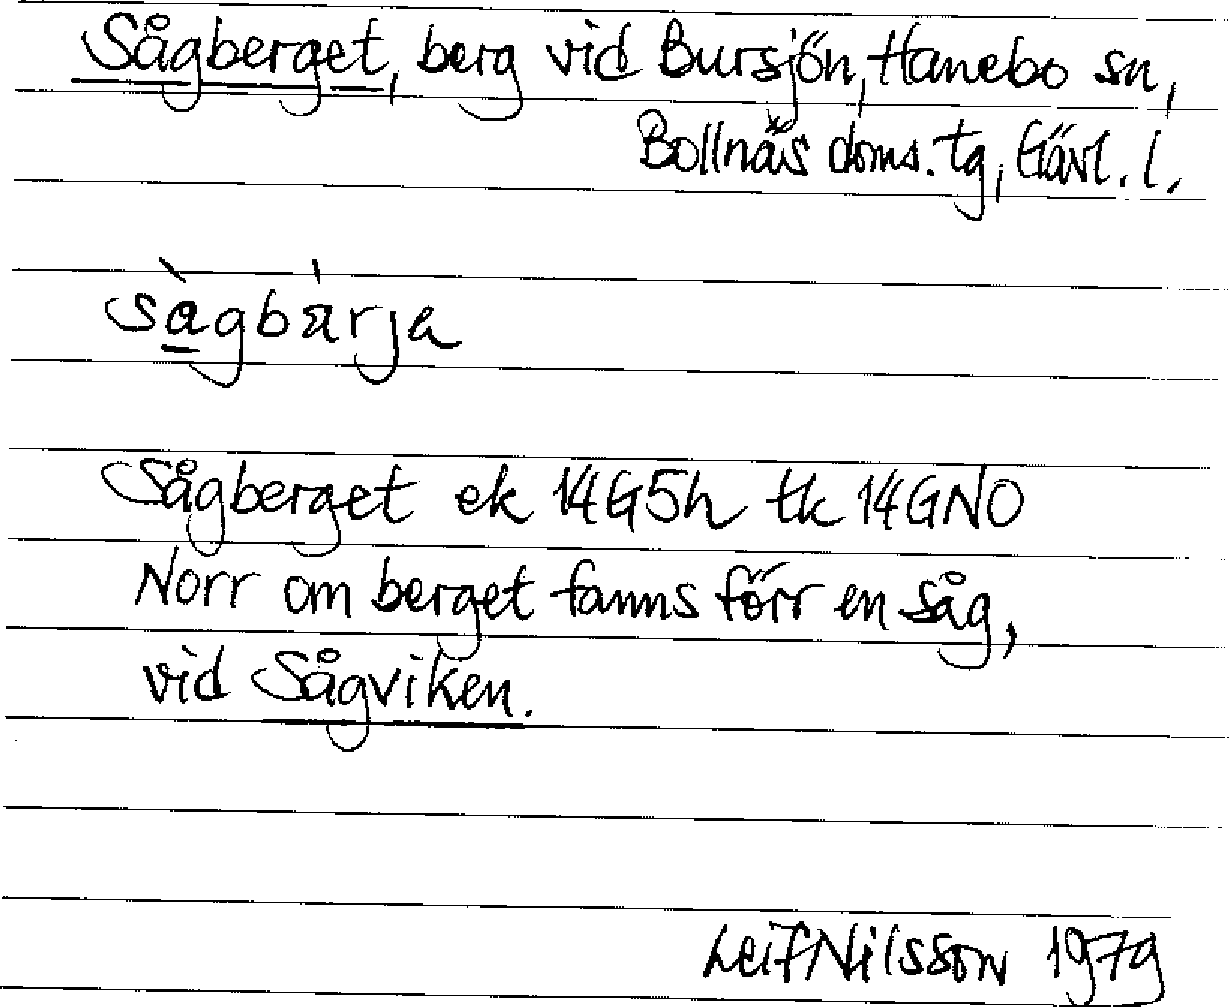 Sågberget, berg vid Bursjön, Hanebo sn,
Bollnäs doms. tg, Gävl. l.
sàgbárja
Sågberget ek 14G5h tk 14GNO
Norr om berget fanns förr en såg,
vid Sågviken.
Leif Nilsson 1979